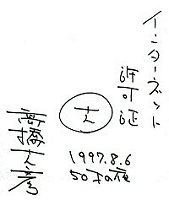 インターネット
許可証
克
1997.8.6
50才の夜
高橋克彦